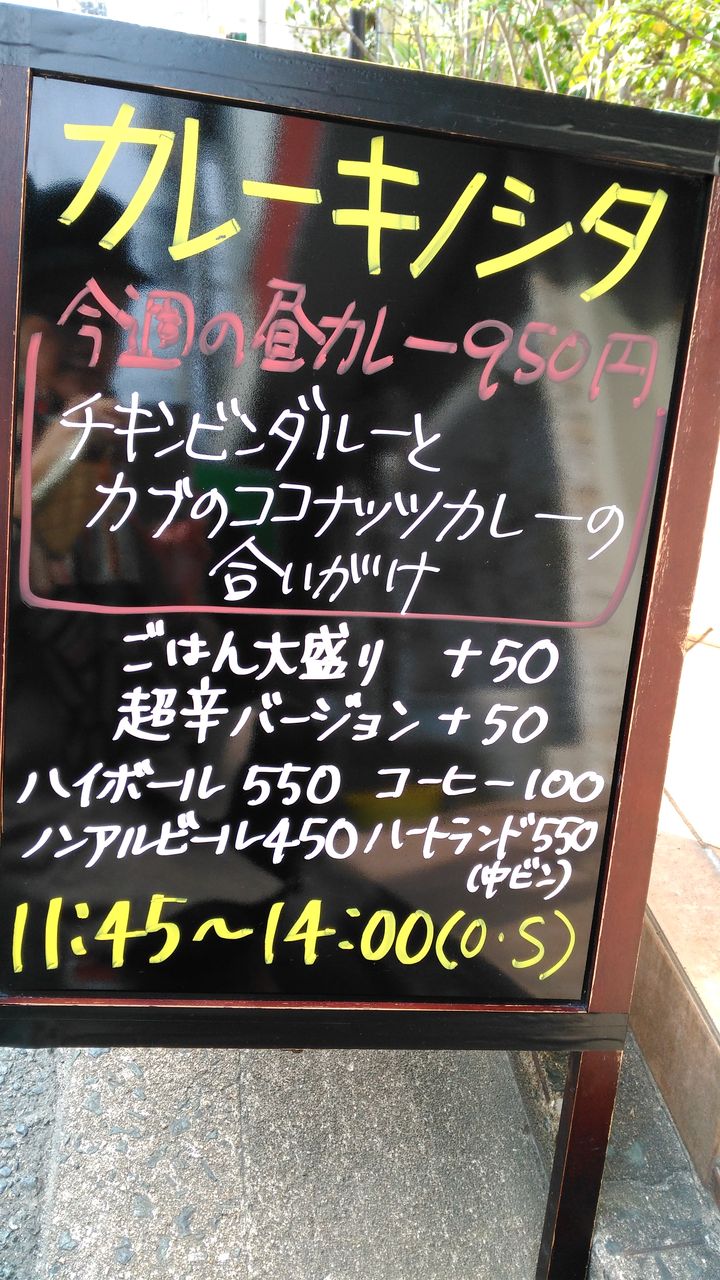 カレーキノシタ
今週の昼カレー950円
チキンビンダルーと
カブのココナッツカレーの
合いがけ
ごはん大盛り +50
超辛バージョン+50
ハイボール 550 コーヒー100
ノンアルビール450 ハートランド550
(中ビン)
11:45〜14:00(O・S)